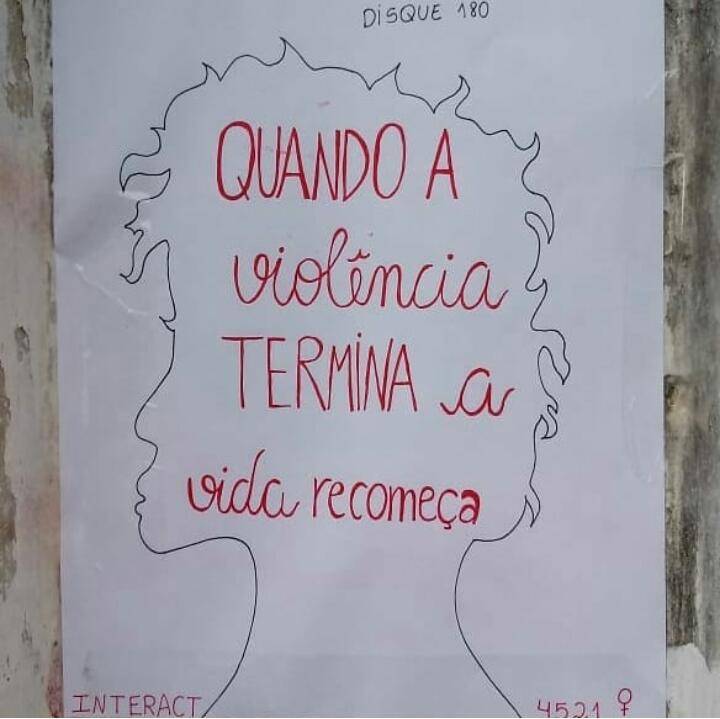 DISQUE 180
QUANDO A
violência
TERMINA a
vida recomeça
INTERACT
4521 ♀